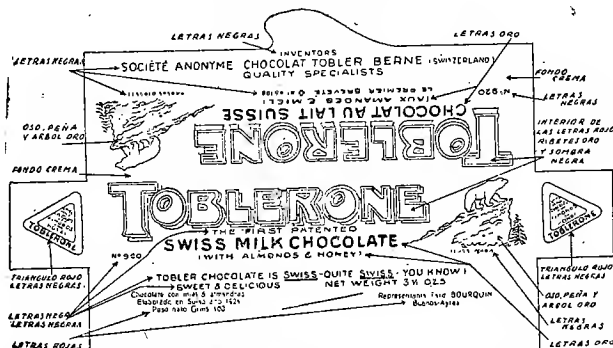 LETRAS NEGRAS
LETRAS ORO
LETRAS NEGRAS
INVENTORS
SOCIÉTÉ ANONYME CHOCOLAT TOBLER BERNE (SWITZERLAND)
QUALITY SPECIALISTS
FONDO
CREMA
LETRAS
NEGRAS
Nº 920
(AUX AMANDES & MIEL)
CHOCOLAT AU LAIT SUISSE
TOBLERONE
OSO, PEÑA
Y ARBOL ORO
INTERIOR DE
LAS LETRAS ROJO
RIBETES ORO
Y SOMBRA
NEGRA
FONDO CREMA
TOBLERONE
THE FIRST PATENTED
SWISS MILK CHOCOLATE
(WITH ALMONDS & HONEY)
TOBLERONE
TOBLERONE
Nº 920
TRIANGULO ROJO
LETRAS NEGRAS
TRIANGULO ROJO
LETRAS NEGRAS
TOBLER CHOCOLATE IS SWISS-QUITE SWISS-YOU KNOW!
SWEET & DELICIOUS
NET WEIGHT 3½ OZS
Chocolate con miel & almendras
Elaborado en Suiza
Peso neto Grms 100
BOURQUIN
Buenos-Ayres
OSO, PEÑA Y
ARBOL ORO
LETRAS NEGRAS
LETRAS NEGRAS
LETRAS
NEGRAS
LETRAS ROJAS
LETRAS ORO